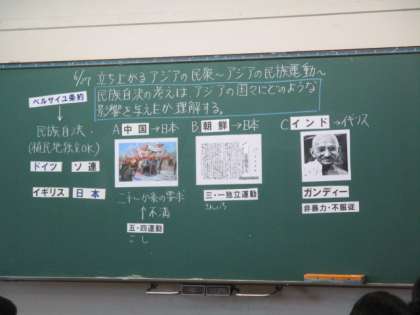 6/27 立ち上がるアジアの民衆～アジアの民族運動～
民族自決の考えは、アジアの国々にどのような
影響を与えたか理解する。
ベルサイユ条約
民族自決
(植民地独立OK)
ドイツ ソ連
イギリス 日本
A 中国→日本
二十一か条の要求
↑不満
五・四運動
ご し
B 朝鮮→日本
三・一独立運動
C インド→イギリス
ガンディー
非暴力・不服従